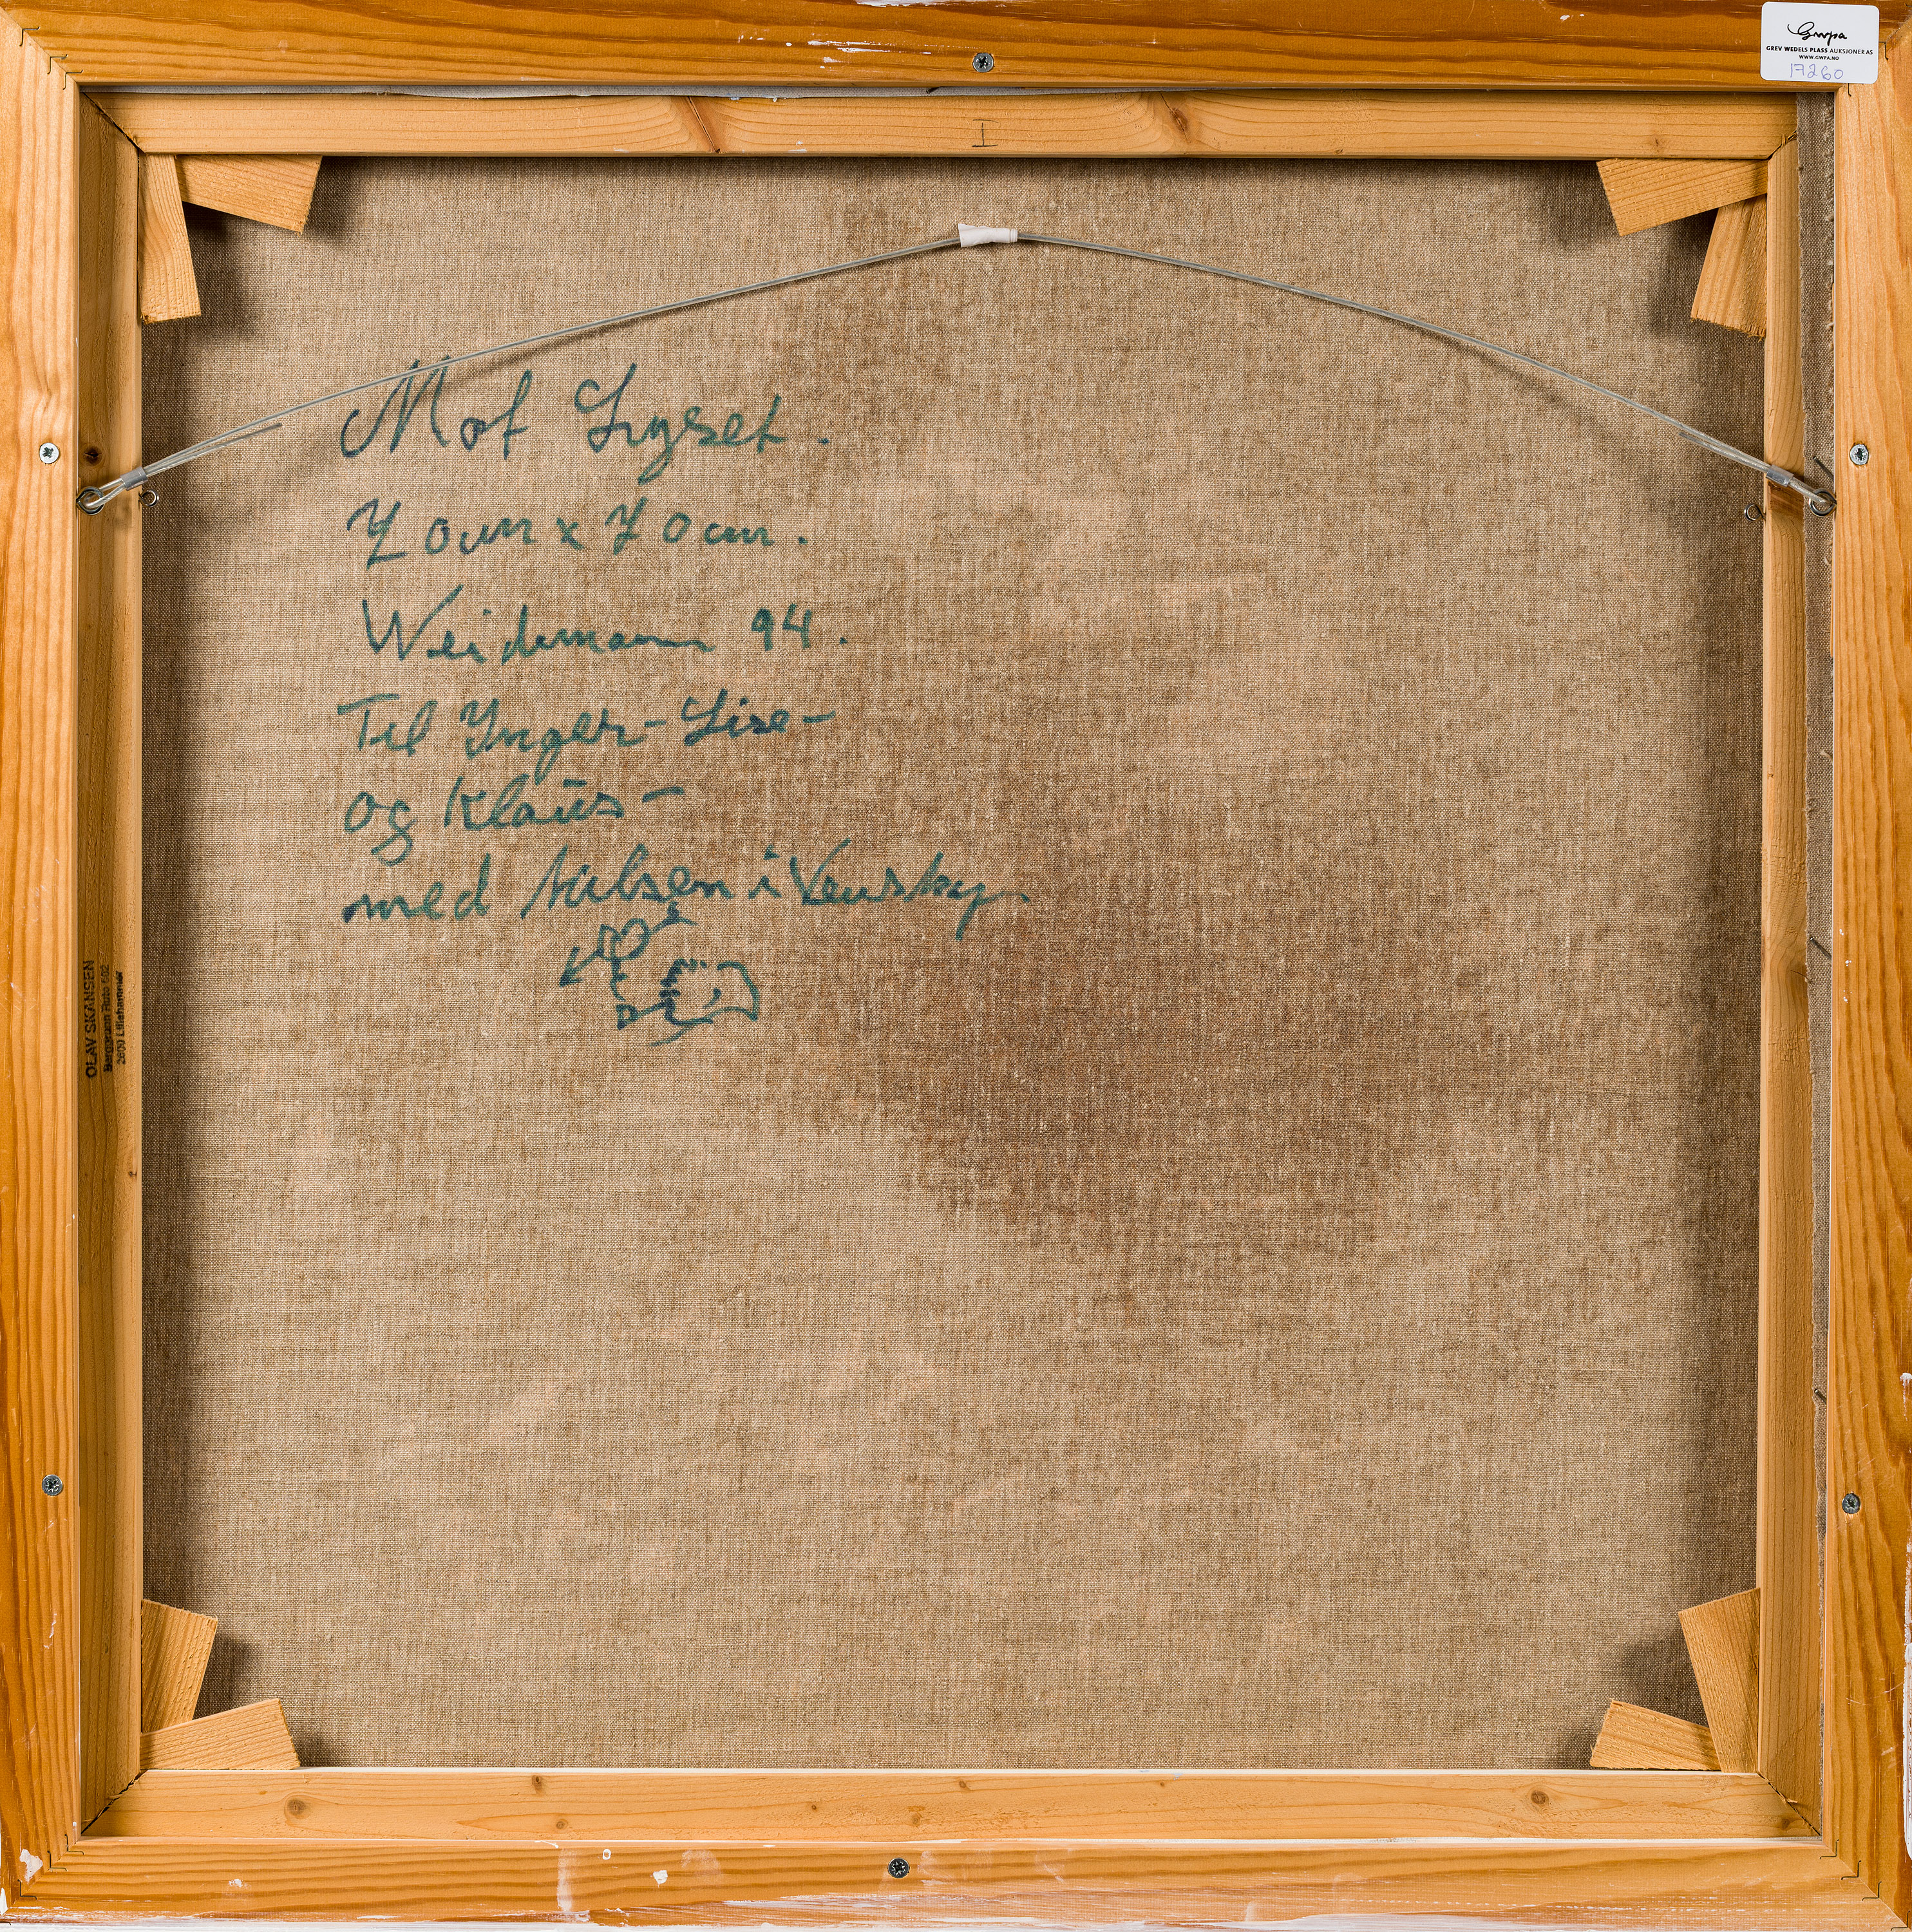 Gwpa
GREV WEDELS PLASS AUKSJONER AS
WWW.GWPA.NO
17260
I
Mot Lyset.
70cm x 70cm.
Weidemann 94.
Til Inger-Lise-
og Klaus-
med hilsen i
OLAV SKANSEN
2600 Lillehammer